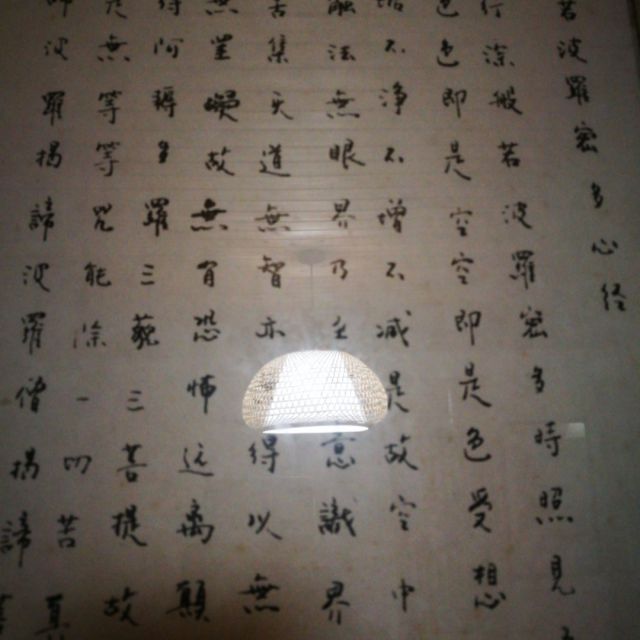 若波羅蜜多心经
行深般若波羅蜜多時照見
色色即是空空即是色受想
垢不淨不增不減是故空中
法無眼界乃至意識界
苦集灭道無智亦得以無
無罣礙故無有恐怖远离顛
得阿耨多羅三藐三菩提故
是無等等咒能除一切苦真
波羅揭諦波羅僧揭諦